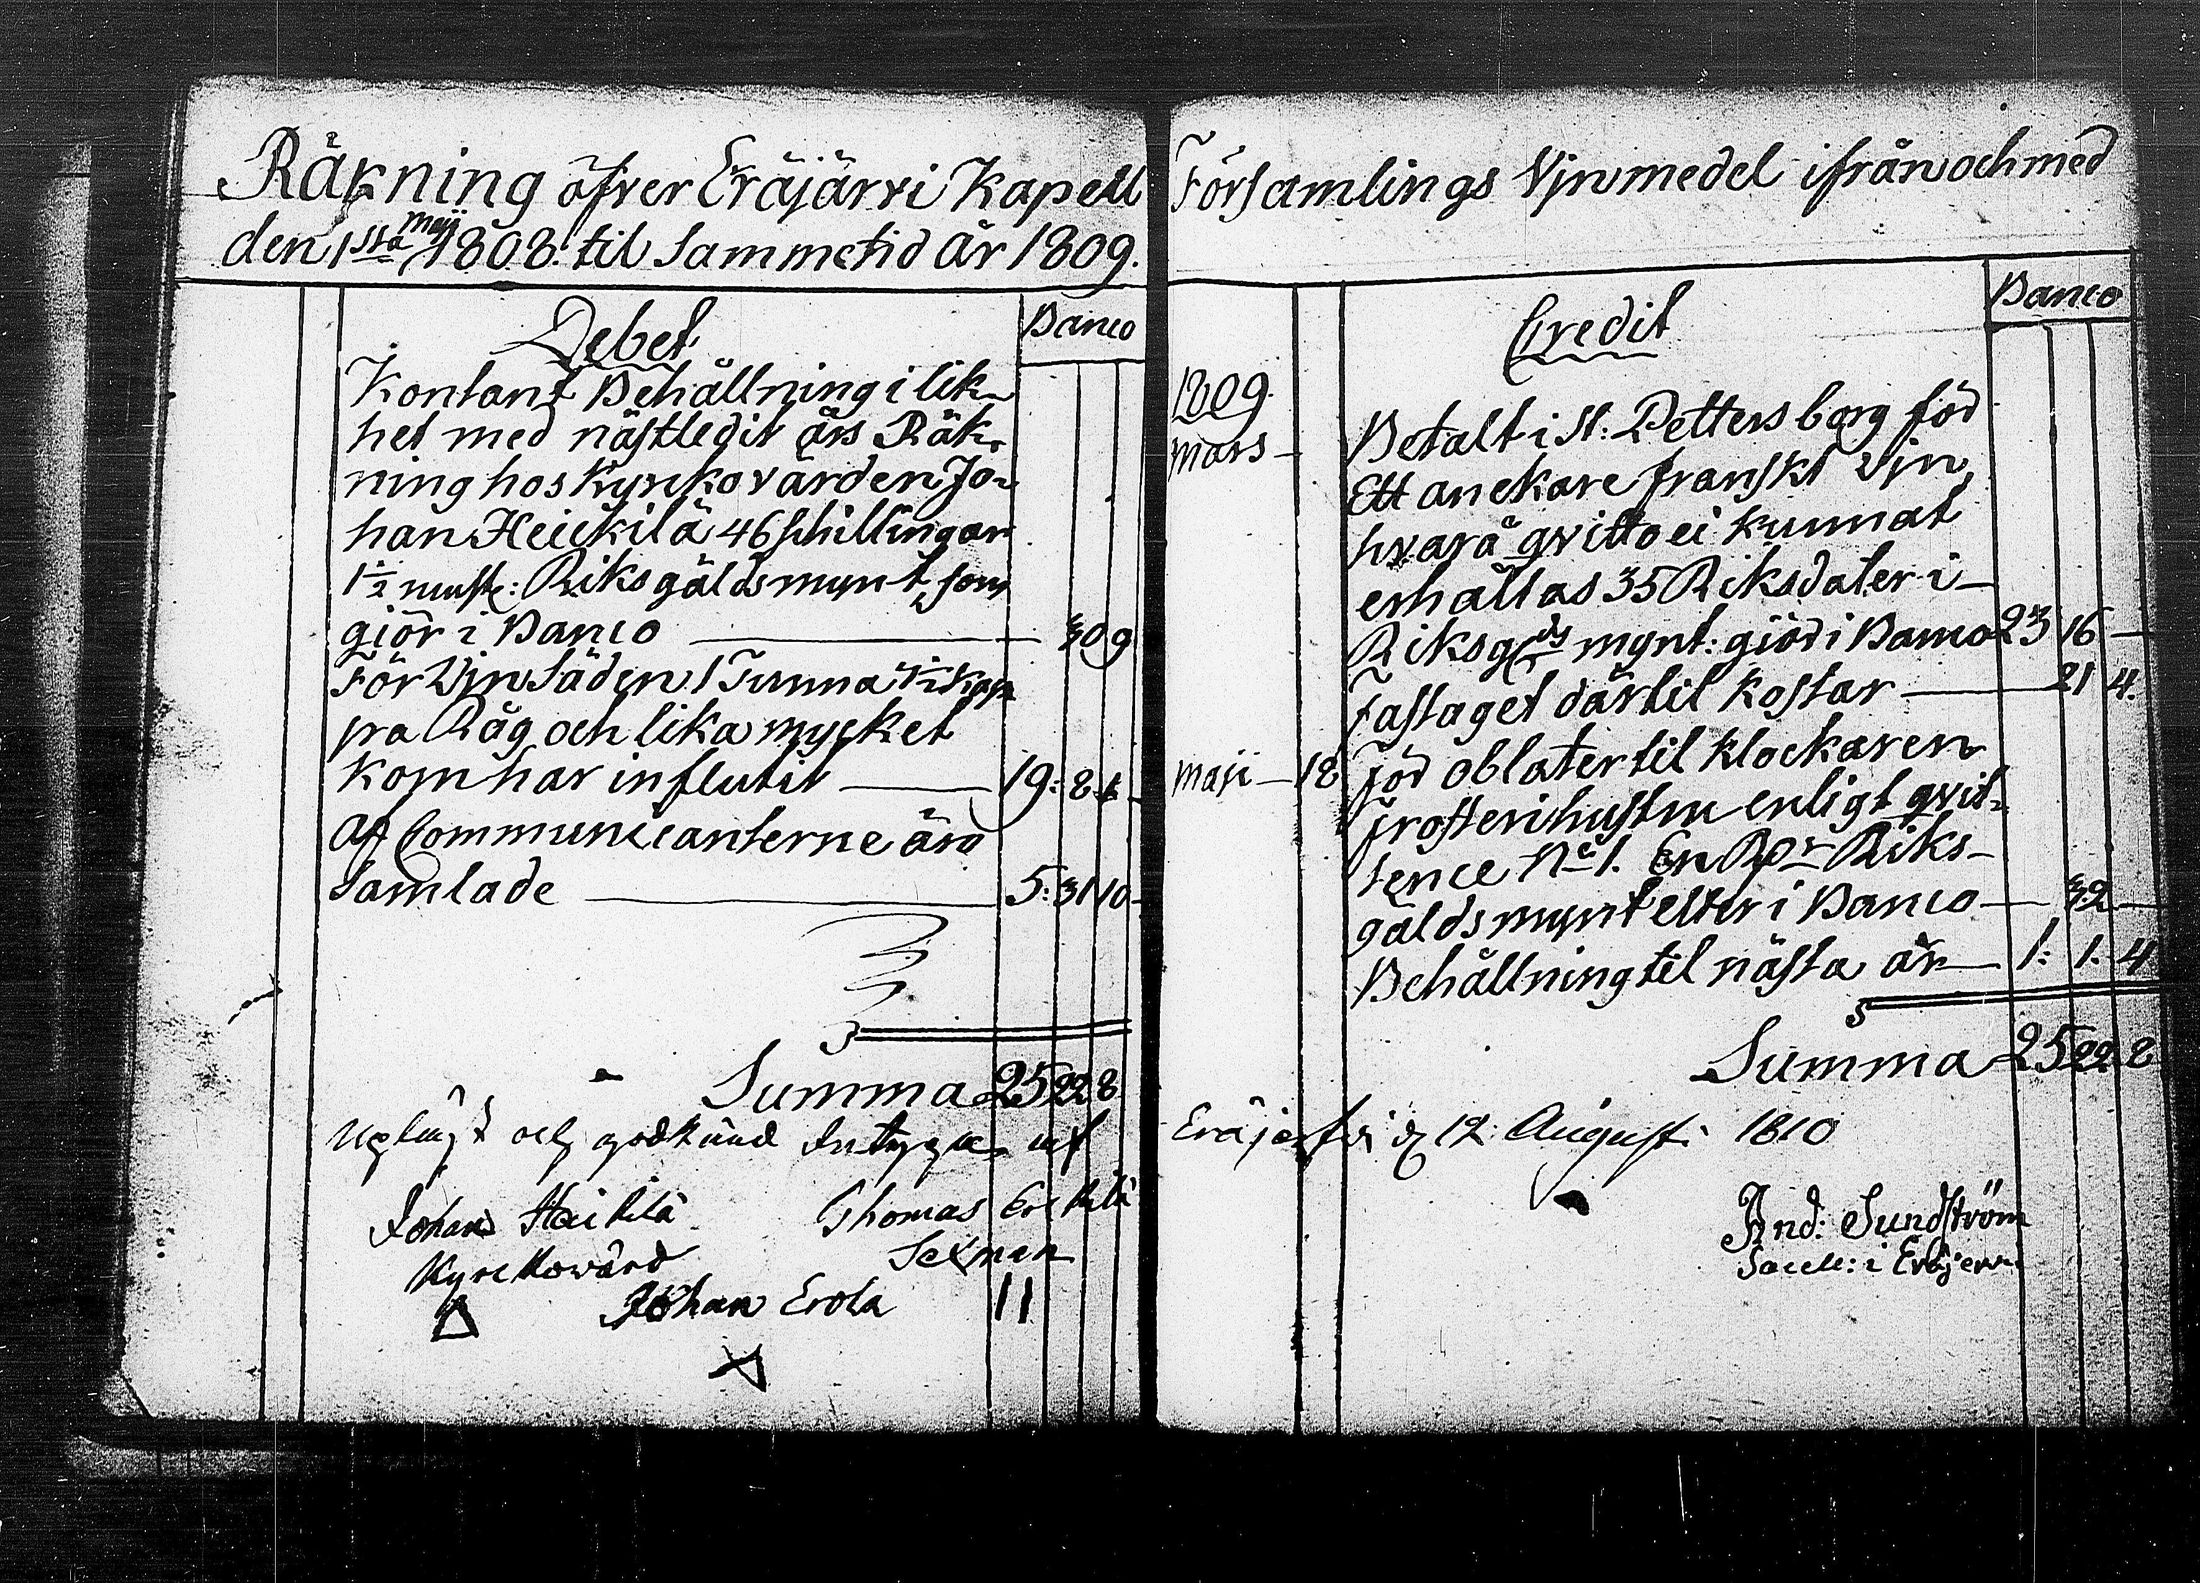 Räkning öfver Eräjärvi Kapell
den 1sta Maji 1808. til samme tid År 1809.
Debet
Banco
Kontant Behållning i lik-
het med nästledit års Räk-
ning hos Kyrkovärden Jo-
han Heickilä 46 schillingar
1½ runst: Riksgälds mynt, som
giör i Banco — 30 9
För Vin Säden 1 Tunna
pa Råg och lika mycket
Korn har influtit — 19: 8
Af Communicanterne äro
Samlade — 5: 31 10
Summa 25 22 8
Uplyst och godkänd intygas af
Johan Heikilä
Thomas Erkkilä
Kyrckowärd
Sexman
Johan Erola
Församlings Vjnmedel ifrån och med
Credit
Banco
1809
Mars — Betalt i St: Pettersborg för
Ett anckare franskt Vjn
hvarå qvitto ei kunnat
erhållas 35 Riksdaler i
Riksglds mynt: giör i Banco 23 16 —
Fastaget därtil kostar — 21 4.
Maji — 18 För oblater til klockaren
Prosten hustru enligt qvit-
tence No 1. En Rdr Riks-
gälds mynt eller i Banco — 32 —
Behållning til nästa år — 1: 1. 4
Summa 25 22 8
Eräjerfvi d 12 August: 1810
And: Sundström
Sacell: i Eräjerv: